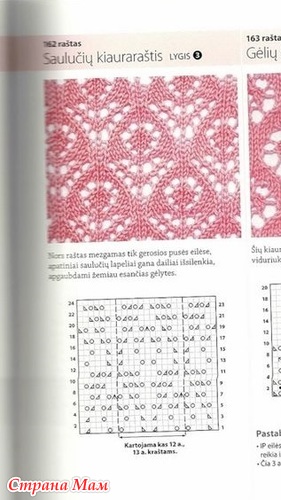 162 raštas
Saulučių kiauraraštis LYGIS 3
Nors raštas mezgamas tik gerosios pusės eilėse,
apatiniai saulučių lapeliai gana dailiai išsilenkia,
apgaubdami žemiau esančias gėlytes.
24 23
22 21
20 19
18 17
16 15
14 13
12 11
10 9
8 7
6 5
4 3
2 1
Kartojama kas 12 a.,
13 a. kraštams.
163 rašta
Gėlių
Šių kiaur
viduriuk
20
18
16
14
12
10
8
6
4
2
Pastal
• IP eilės
reikia i
• Čia 3 a
Страна Мам